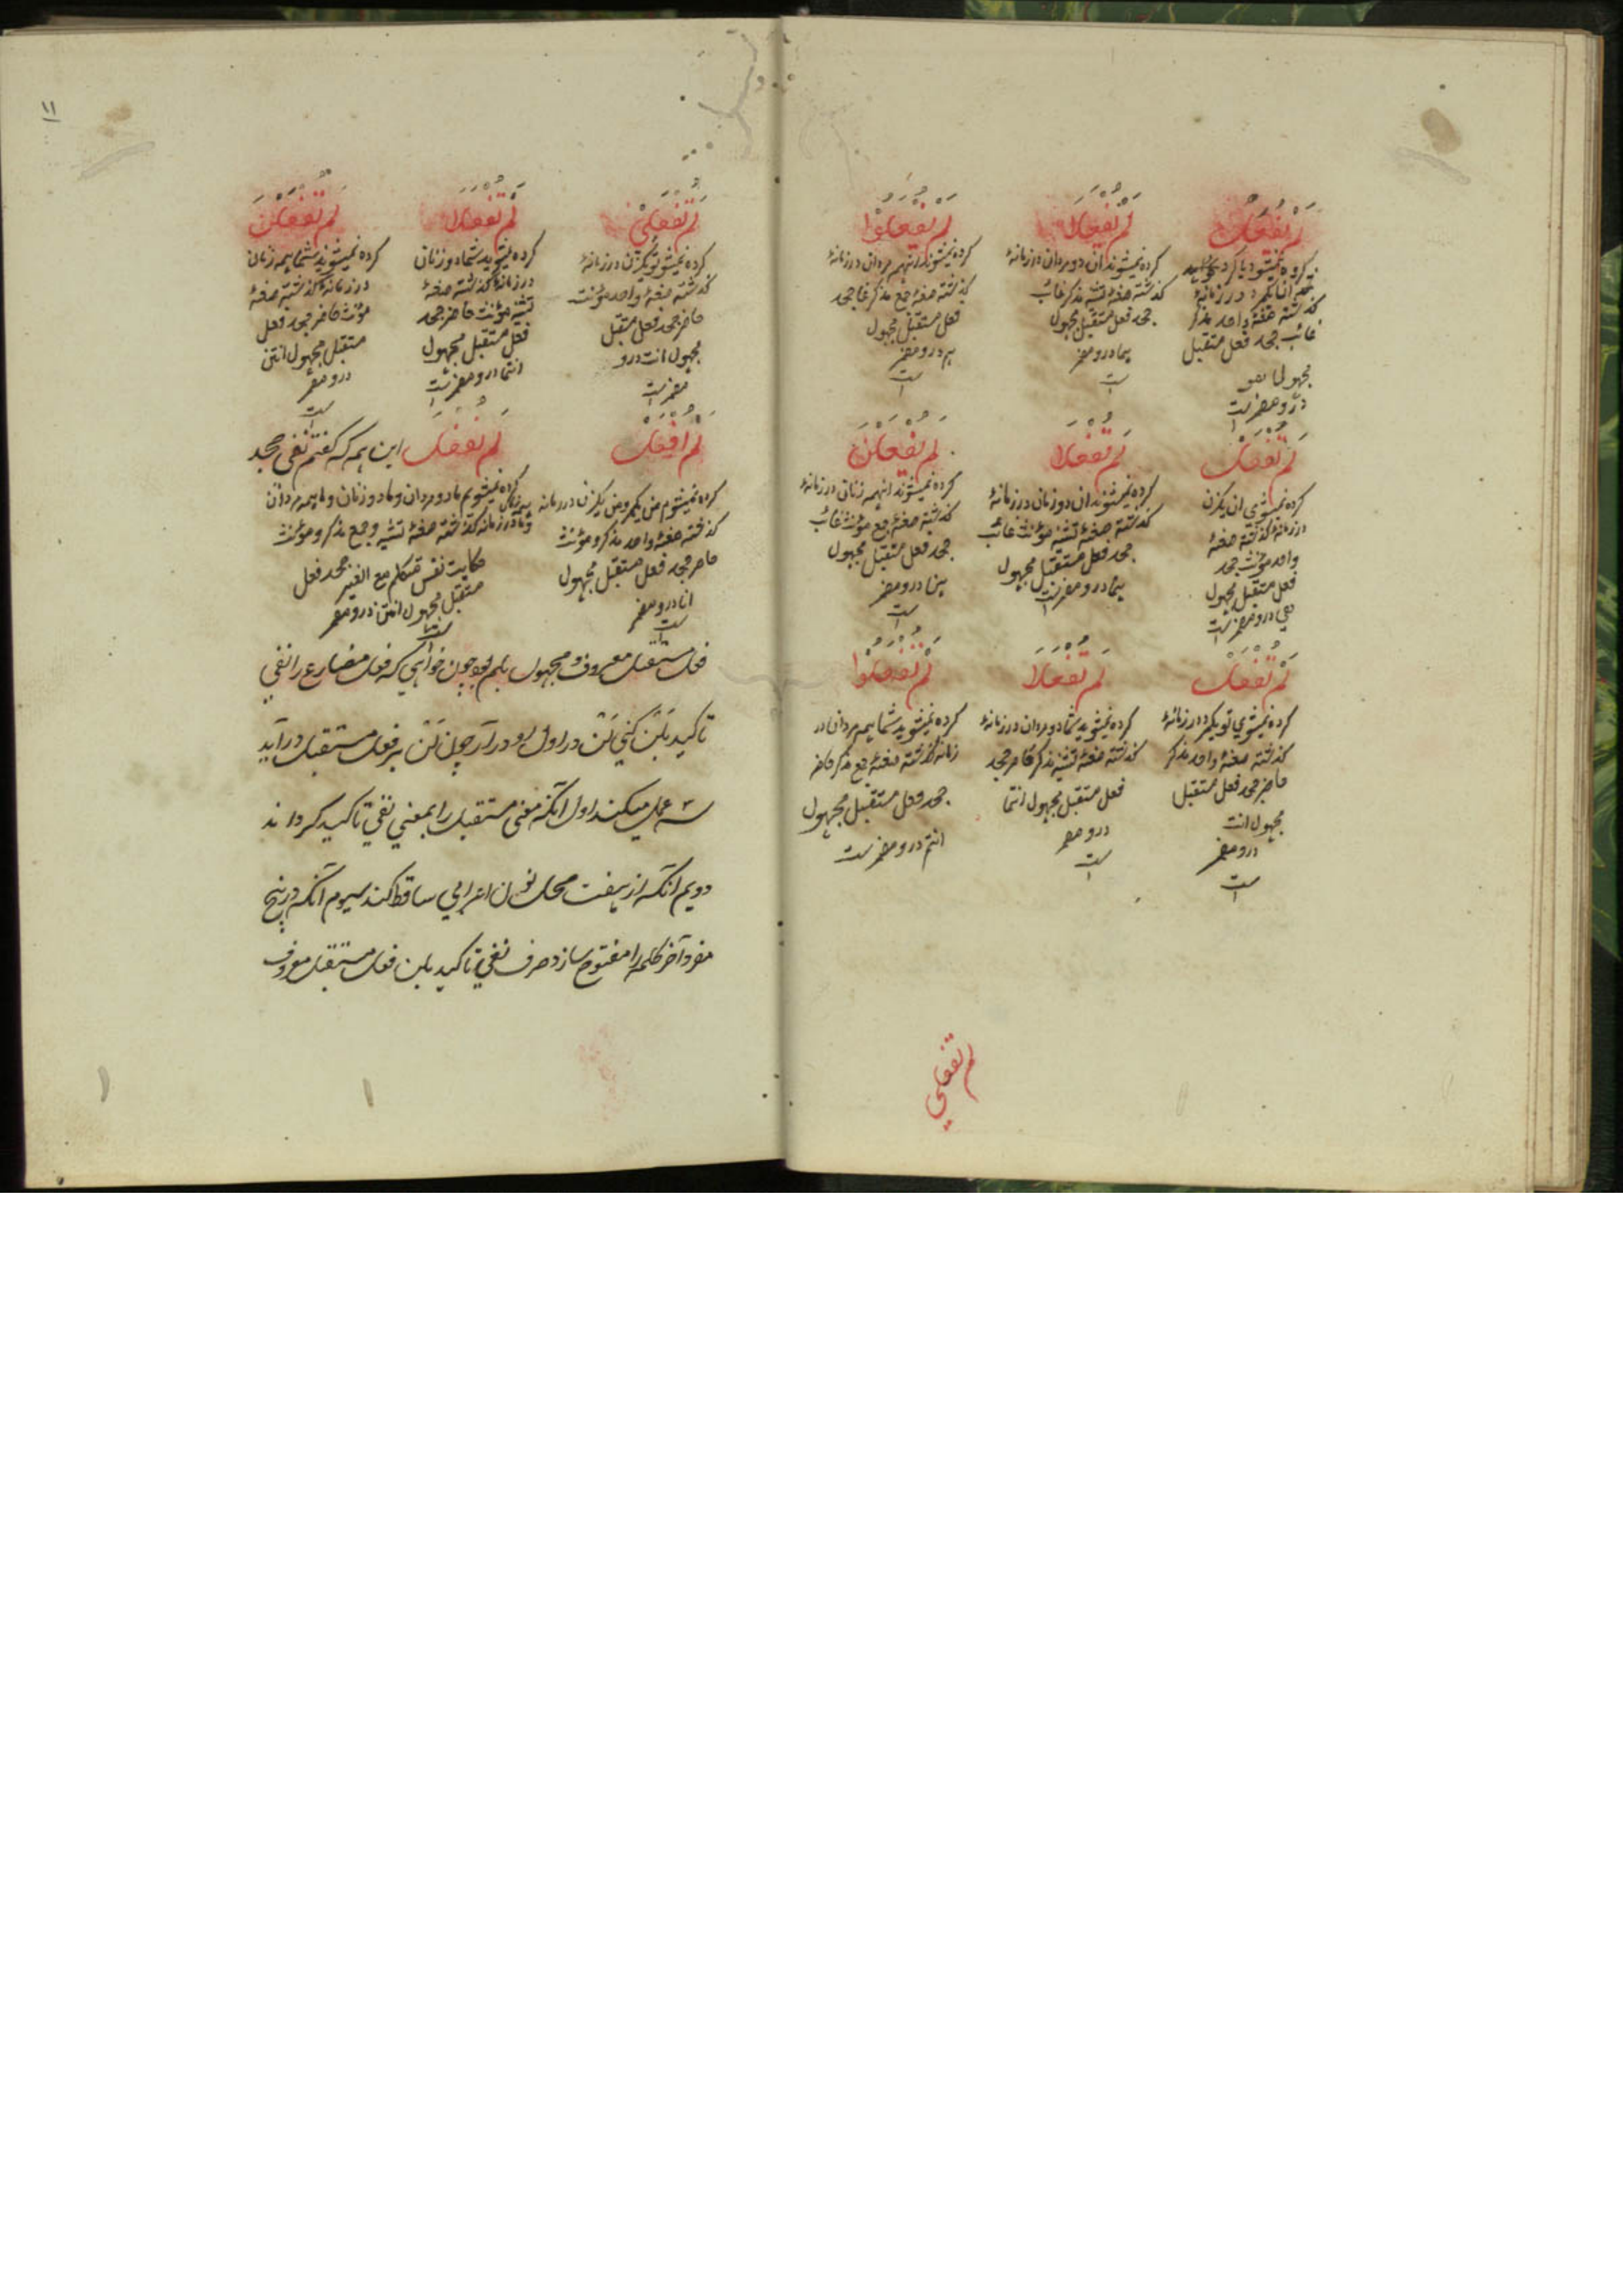 لَمْ يُفْعَلْ
کرده نمیشود یا کرده
آن یکمرد در زمانهٔ
گذشته صغهٔ واحد مذکر
غائب جحد فعل مستقبل
مجهول هو
درو مضمرست
لَمْ يُفْعَلَا
کرده نمیشوند آن دو مردان در زمانهٔ
گذشته صغهٔ تثنیه مذکر غائب
جحد فعل مستقبل مجهول
هما درو مضمر
ست
لَمْ يُفْعَلُوْا
کرده نمیشوند آنهمه مردان در زمانهٔ
گذشته صغهٔ جمع مذکر جحد
فعل مستقبل مجهول
هم درو مضمر
ست
لَمْ تُفْعَلْ
کرده نمیشوی آن یکزن
در زمانهٔ گذشته صغهٔ
واحد مؤنث جحد
فعل مستقبل مجهول
هی درو مضمرست
لَمْ تُفْعَلَا
کرده نمیشوند آن دو زنان در زمانهٔ
گذشته صغهٔ تثنیه مؤنث غائب
جحد فعل مستقبل مجهول
هما درو مضمرست
لَمْ يُفْعَلْنَ
کرده نمیشوند آنهمه زنان در زمانهٔ
گذشته صغهٔ جمع مؤنث غائب
جحد فعل مستقبل مجهول
هن درو مضمر
ست
لَمْ تُفْعَلْ
کرده نمیشوی تو یکمرد در زمانهٔ
گذشته صغهٔ واحد مذکر
حاضر جحد فعل مستقبل
مجهول انت
درو مضمر
ست
لَمْ تُفْعَلَا
کرده نمیشوید شما دو مردان در زمانهٔ
گذشته صغهٔ تثنیه مذکر حاضر جحد
فعل مستقبل مجهول انتما
درو مضمر
ست
لَمْ تُفْعَلُوْا
کرده نمیشوید شما همه مردان در
زمانه گذشته صغهٔ جمع مذکر حاضر
جحد فعل مستقبل مجهول
انتم درو مضمر ست
لم تفعلي
۱۱
لَمْ تُفْعَلِيْ
کرده نمیشوی تو یکزن در زمانهٔ
گذشته صغهٔ واحد مؤنث
حاضر جحد فعل مستقبل
مجهول انت درو
مضمرست
لَمْ تُفْعَلَا
کرده نمیشوید شما دو زنان
در زمانهٔ گذشته صغهٔ
تثنیه مؤنث حاضر جحد
فعل مستقبل مجهول
انتما درو مضمرست
لَمْ تُفْعَلْنَ
کرده نمیشوند شما همه زنان
در زمانهٔ گذشته صغهٔ
مؤنث حاضر جحد فعل
مستقبل مجهول انتن
درو مضمر
ست
لَمْ اُفْعَلْ
کرده نمیشوم من یکمرد و من یکزن در زمانه
گذشته صغهٔ واحد مذکر و مؤنث
حاضر جحد فعل مستقبل مجهول
انا درو مضمر
ست
لَمْ نُفْعَلْ این همه که گفتم نفی جحد
کرده نمیشویم ما دو مردان و ما دو زنان و ما همه مردان
در زمانه گذشته صغهٔ تثنیه و جمع مذکر و مؤنث
حکایت نفس متکلم مع الغیر جحد فعل
مستقبل مجهول درو مضمر
ست
فعل مستقبل معروف و مجهول بلم بود چون خواهي که فعل مضارع را نفي
تاکید بلن کني لَنْ در اول او در آر چون لَنْ بر فعل مستقبل درآید
سه عمل میکند اول آنکه معنی مستقبل را بمعنی نفي تاکید گرداند
دویم انکه از هفت محل نون اعرابي ساقط کند سیوم آنکه در پنج
مفرد آخر کلمه را مفتوح سازد صرف نفي تاکید بلن فعل مستقبل معروف